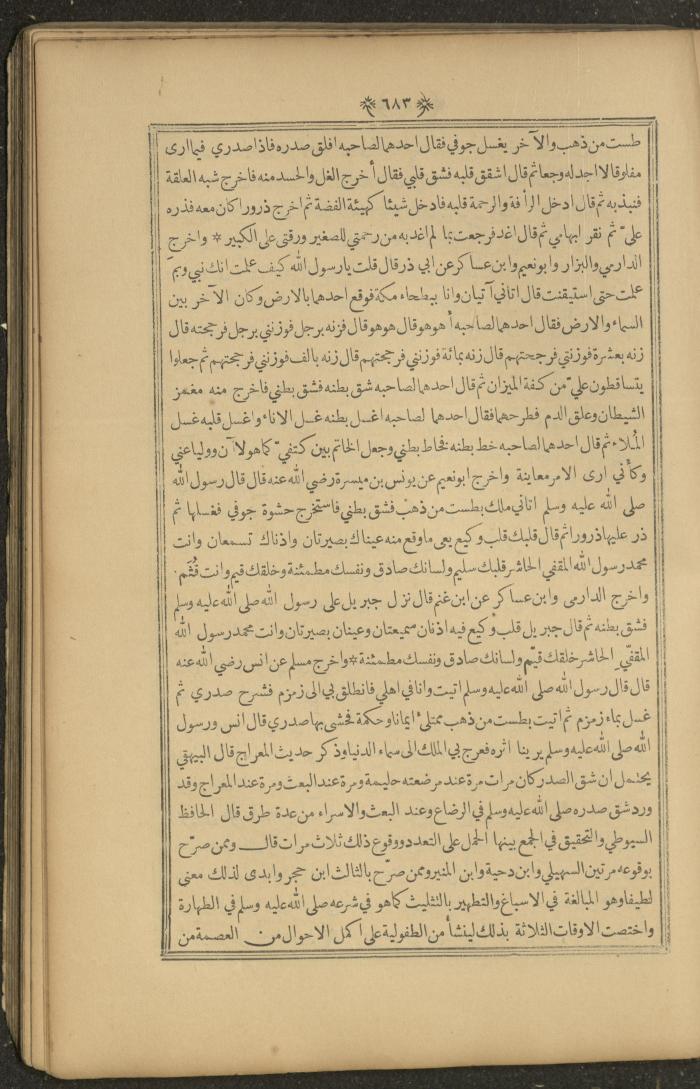 ٦٨٣
طست من ذهب والآخر يغسل جوفي فقال احدهما لصاحبه افلق صدره فاذا صدري فيما ارى
مفلوقا لا اجد له وجعا ثم قال اشقق قلبه فشق قلبي فقال أخرج الغل والحسد منه فاخرج شبه العلقة
فنبذ به ثم قال ادخل الرأفة والرحمة قلبه فادخل شيئا كهيئة الفضة ثم اخرج ذرورا كان معه فذره
عليّ ثم نقر ابهامي ثم قال اغد فرجعت بما لم اغد به من رحمتي للصغير ورقتي على الكبير * واخرج
الدارمي والبزار وابو نعيم وابن عساكر عن ابي ذر قال قلت يا رسول الله كيف علمت انك نبي وبمَ
علمت حتى استيقنت قال اتاني آتيان وانا ببطحاء مكة فوقع احدهما بالارض وكان الآخر بين
السماء والارض فقال احدهما لصاحبه أهو هو قال هو هو قال فزنه برجل فوزنني برجل فرجحته قال
زنه بعشرة فوزنني فرجحتهم قال زنه بمائة فوزنني فرجحتهم قال زنه بالف فوزنني فرجحتهم ثم جعلوا
يتساقطون عليّ من كفة الميزان ثم قال احدهما لصاحبه شق بطنه فشق بطني فاخرج منه مغمز
الشيطان وعلق الدم فطرحهما فقال احدهما لصاحبه اغسل بطنه غسل الاناء واغسل قلبه غسل
المُلاء ثم قال احدهما لصاحبه خط بطنه فخاط بطني وجعل الخاتم بين كتفيّ كما هو لآن ووليا عني
وكأني ارى الامر معاينة واخرج ابو نعيم عن يونس بن ميسرة رضي الله عنه قال قال رسول الله
صلى الله عليه وسلم اتاني ملك بطست من ذهب فشق بطني فاستخرج حشوة جوفي فغسلها ثم
ذر عليها ذرورا ثم قال قلبك قلب وكيع يعي ما وقع منه عيناك بصيرتان واذناك تسمعان وانت
محمد رسول الله المقفي الحاشر قلبك سليم ولسانك صادق ونفسك مطمئنة وخلقك قيم وانت قُثَم.
واخرج الدارمي وابن عساكر عن ابن غنم قال نزل جبريل على رسول الله صلى الله عليه وسلم
فشق بطنه ثم قال جبريل قلب وكيع فيه اذنان سميعتان وعينان بصيرتان وانت محمد رسول الله
المقفّي الحاشر خلقك قيّم ولسانك صادق ونفسك مطمئنة * واخرج مسلم عن انس رضي الله عنه
قال قال رسول الله صلى الله عليه وسلم اتيت وانا في اهلي فانطلق بي الى زمزم فشرح صدري ثم
غسل بماء زمزم ثم اتيت بطست من ذهب ممتلئ ايمانا وحكمة فحشى بها صدري قال انس ورسول
الله صلى الله عليه وسلم يرينا اثره فعرج بي الملك الى سماء الدنيا وذكر حديث المعراج قال البيهقي
يحتمل ان شق الصدر كان مرات مرة عند مرضعته حليمة ومرة عند البعث ومرة عند المعراج وقد
ورد شق صدره صلى الله عليه وسلم في الرضاع وعند البعث والاسراء من عدة طرق قال الحافظ
السيوطي والتحقيق في الجمع بينها الحمل على التعدد ووقوع ذلك ثلاث مرات قال وممن صرّح
بوقوعه مرتين السهيلي وابن دحية وابن المنير وممن صرّح بالثالث ابن حجر وابدى لذلك معنى
لطيفا وهو المبالغة في الاسباغ والتطهير بالتثليث كما هو في شرعه صلى الله عليه وسلم في الطهارة
واختصت الاوقات الثلاثة بذلك لينشأ من الطفولية على اكمل الاحوال من العصمة من